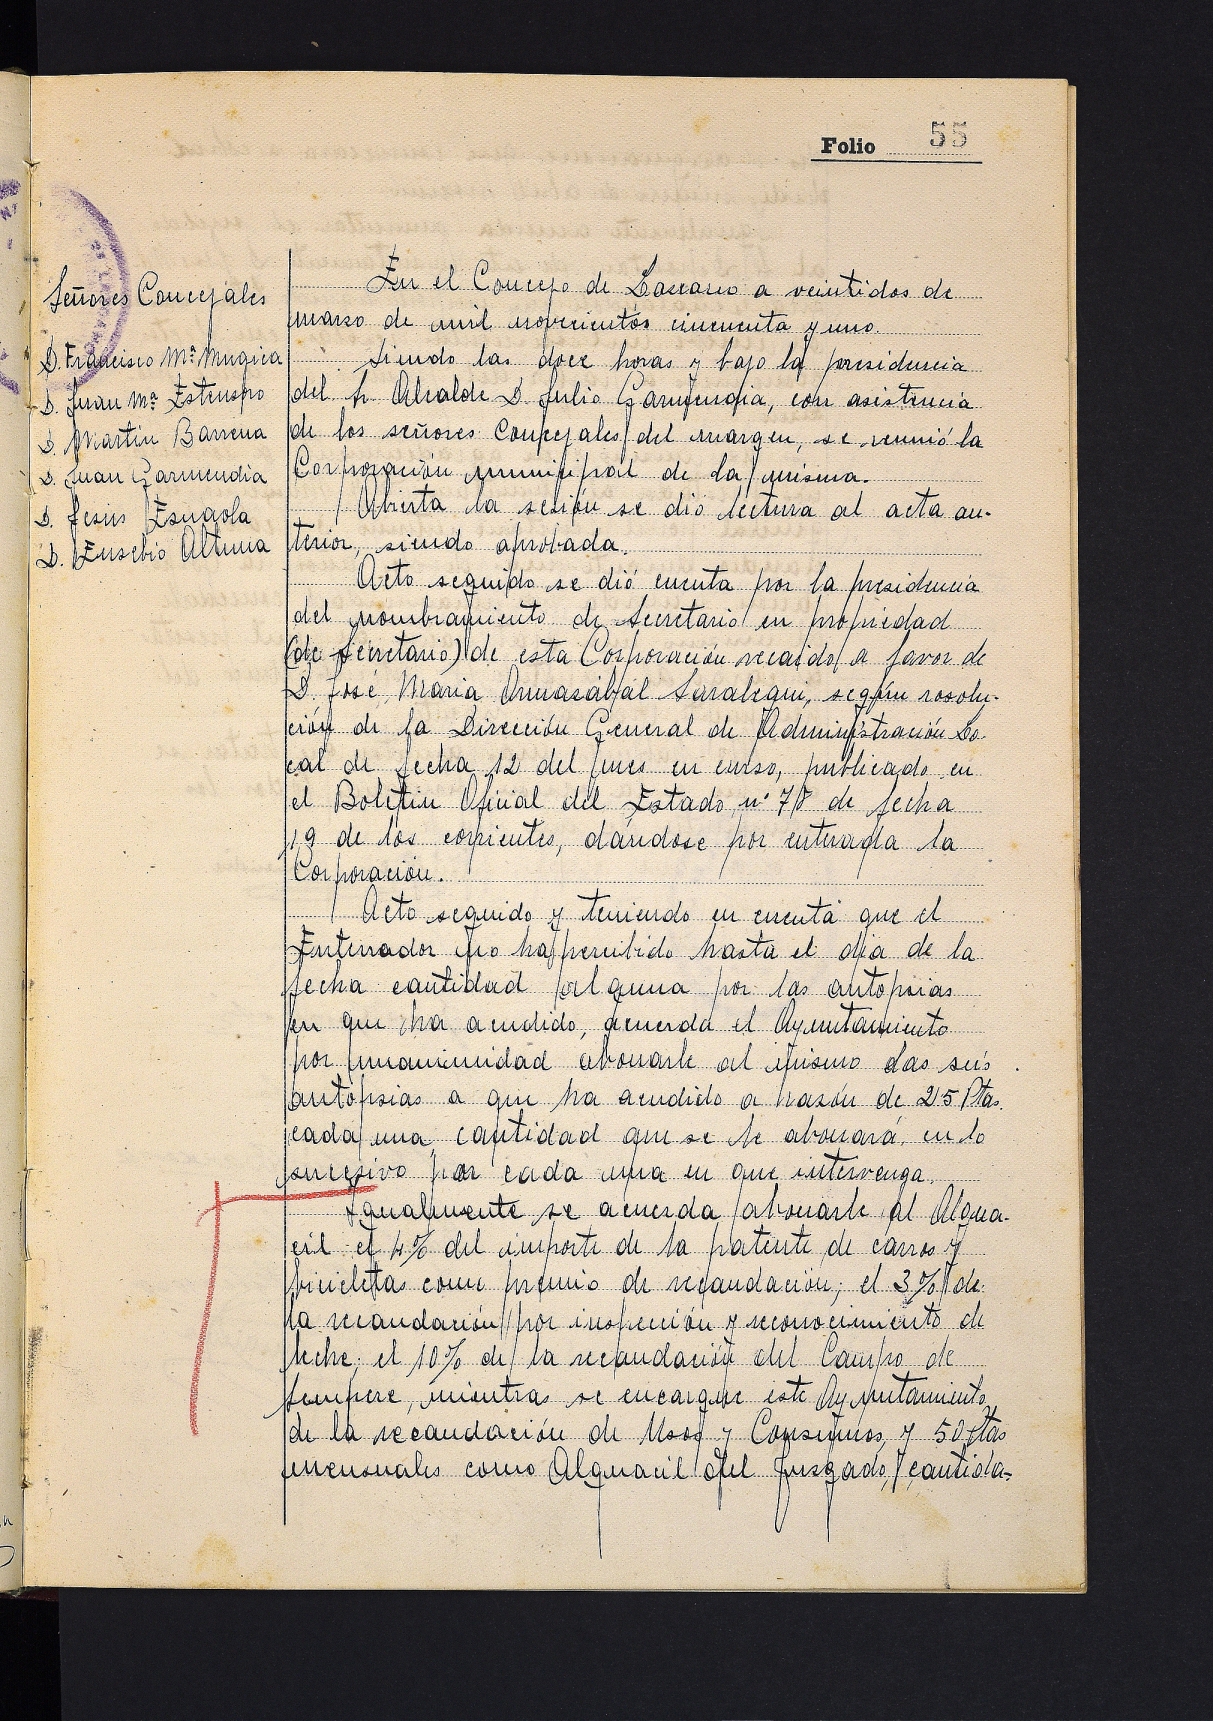 Folio 55
Señores Concejales
D. Francisco Mª Mugica
D. Juan Mª Estensoro
D. Martin Barrena
D. Juan Garmendia
D. Jesus Esnaola
D. Eusebio Altuna
En el Concejo de Lazcano a veintidos de
marzo de mil novecientos cincuenta y uno.
Siendo las doce horas y bajo la presidencia
del Sr Alcalde D. Julio Garmendia, con asistencia
de los señores Concejales del margen, se reunió la
Corporación municipal de la misma.
Abierta la sesión se dió lectura al acta an-
terior, siendo aprobada.
Acto seguido se dió cuenta por la presidencia
del nombramiento de Secretario en propiedad
(de Secretario) de esta Corporación recaido a favor de
D. José Maria Armazábal Saralegui, según resolu-
ción de la Dirección General de Administración Lo-
cal de fecha 12 del mes en curso, publicado en
el Boletin Oficial del Estado nº 78 de fecha
19 de los corrientes, dándose por enterada la
Corporación.
Acto seguido y teniendo en cuenta que el
Enterrador no ha percibido hasta el dia de la
fecha cantidad alguna por las autopsias
en que ha acudido, acuerda el Ayuntamiento
por unanimidad abonarle al mismo las seis
autopsias a que ha acudido a razón de 25 Ptas.
cada una, cantidad que se le abonará en lo
sucesivo por cada una en que intervenga.
Igualmente se acuerda abonarle al Algua-
cil el 4% del importe de la patente de carros y
bicicletas como premio de recaudación; el 3% de
la recaudación por inspección y reconocimiento de
leche; el 10% de la recaudación del Campo de
Sempere, mientras se encargue este Ayuntamiento
de la recaudación de Usos y Consumos, y 50 ptas
mensuales como Alguacil del Juzgado, cantida-